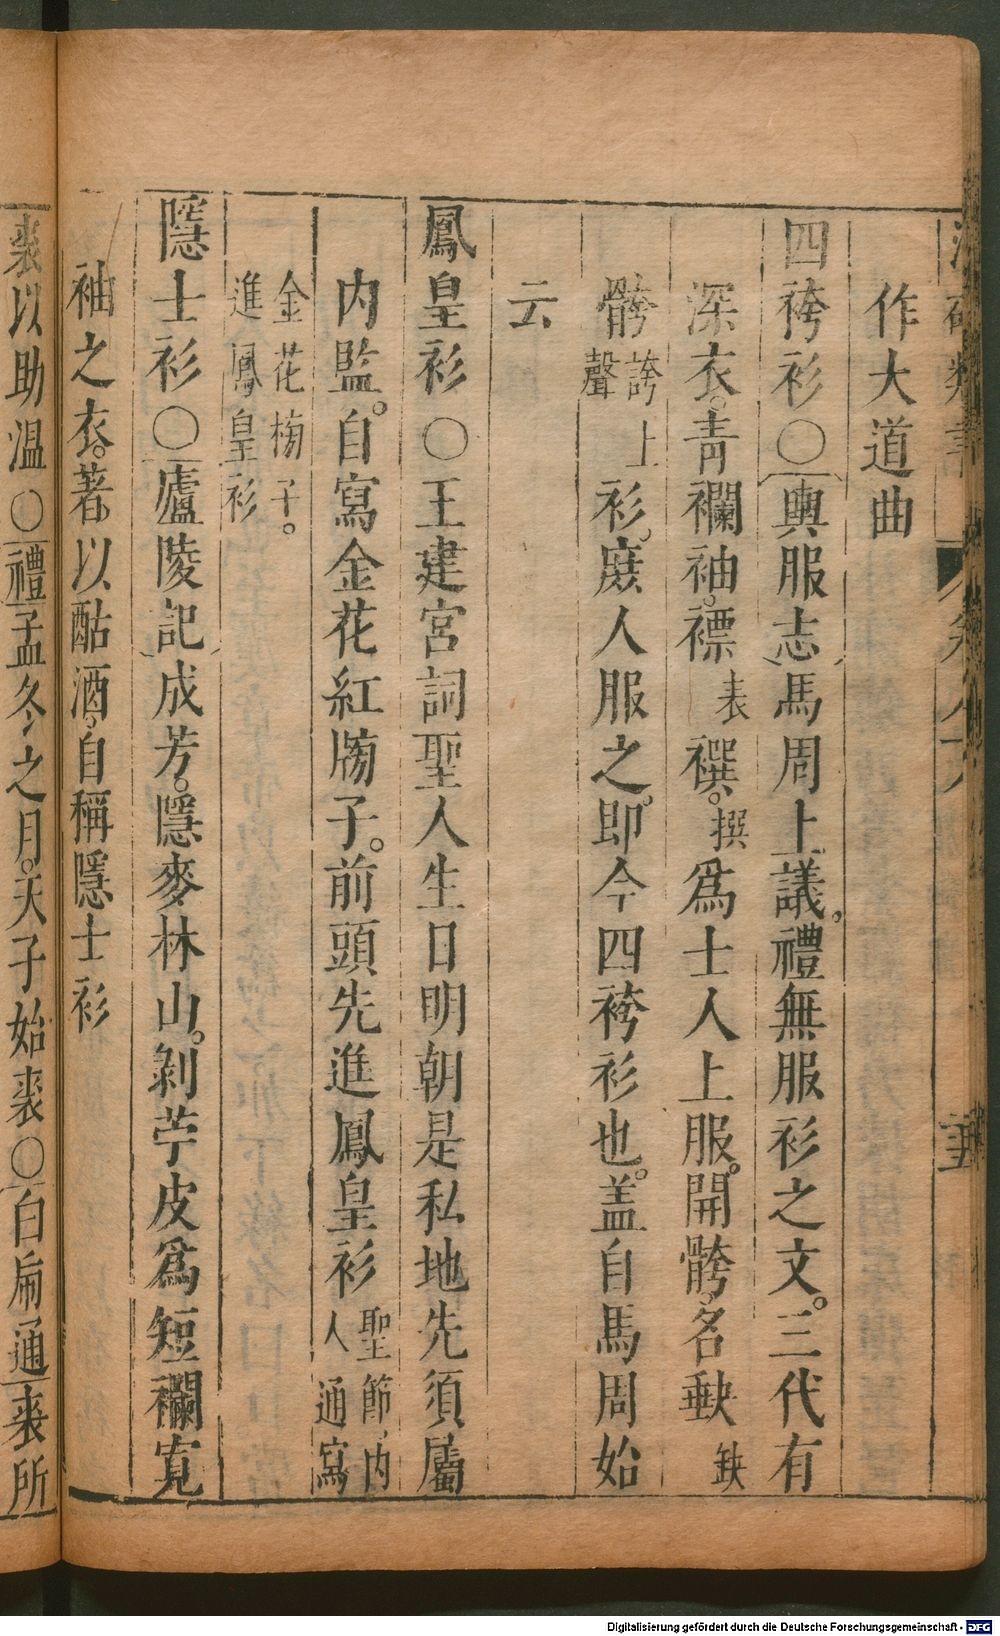 作大道曲
四袴衫○輿服志馬周上議。禮無服衫之文。三代有
深衣。青襴袖。褾表襈。撰爲士人上服。開骻。名缺
骻誇上聲衫。庶人服之。即今四袴衫也。盖自馬周始
云
鳳皇衫○王建宮詞聖人生日明朝是私地先須屬
内監。自寫金花紅牓子。前頭先進鳳皇衫聖節内人通寫
金花牓子。進鳳皇衫
隱士衫○廬陵記成芳。隱麥林山。剝苧皮爲短襴寬
袖之衣。著以酤酒。自稱隱士衫
裘以助温○禮孟冬之月。天子始裘○白扁通裘所
Digitalisierung gefördert durch die Deutsche Forschungsgemeinschaft - DFG